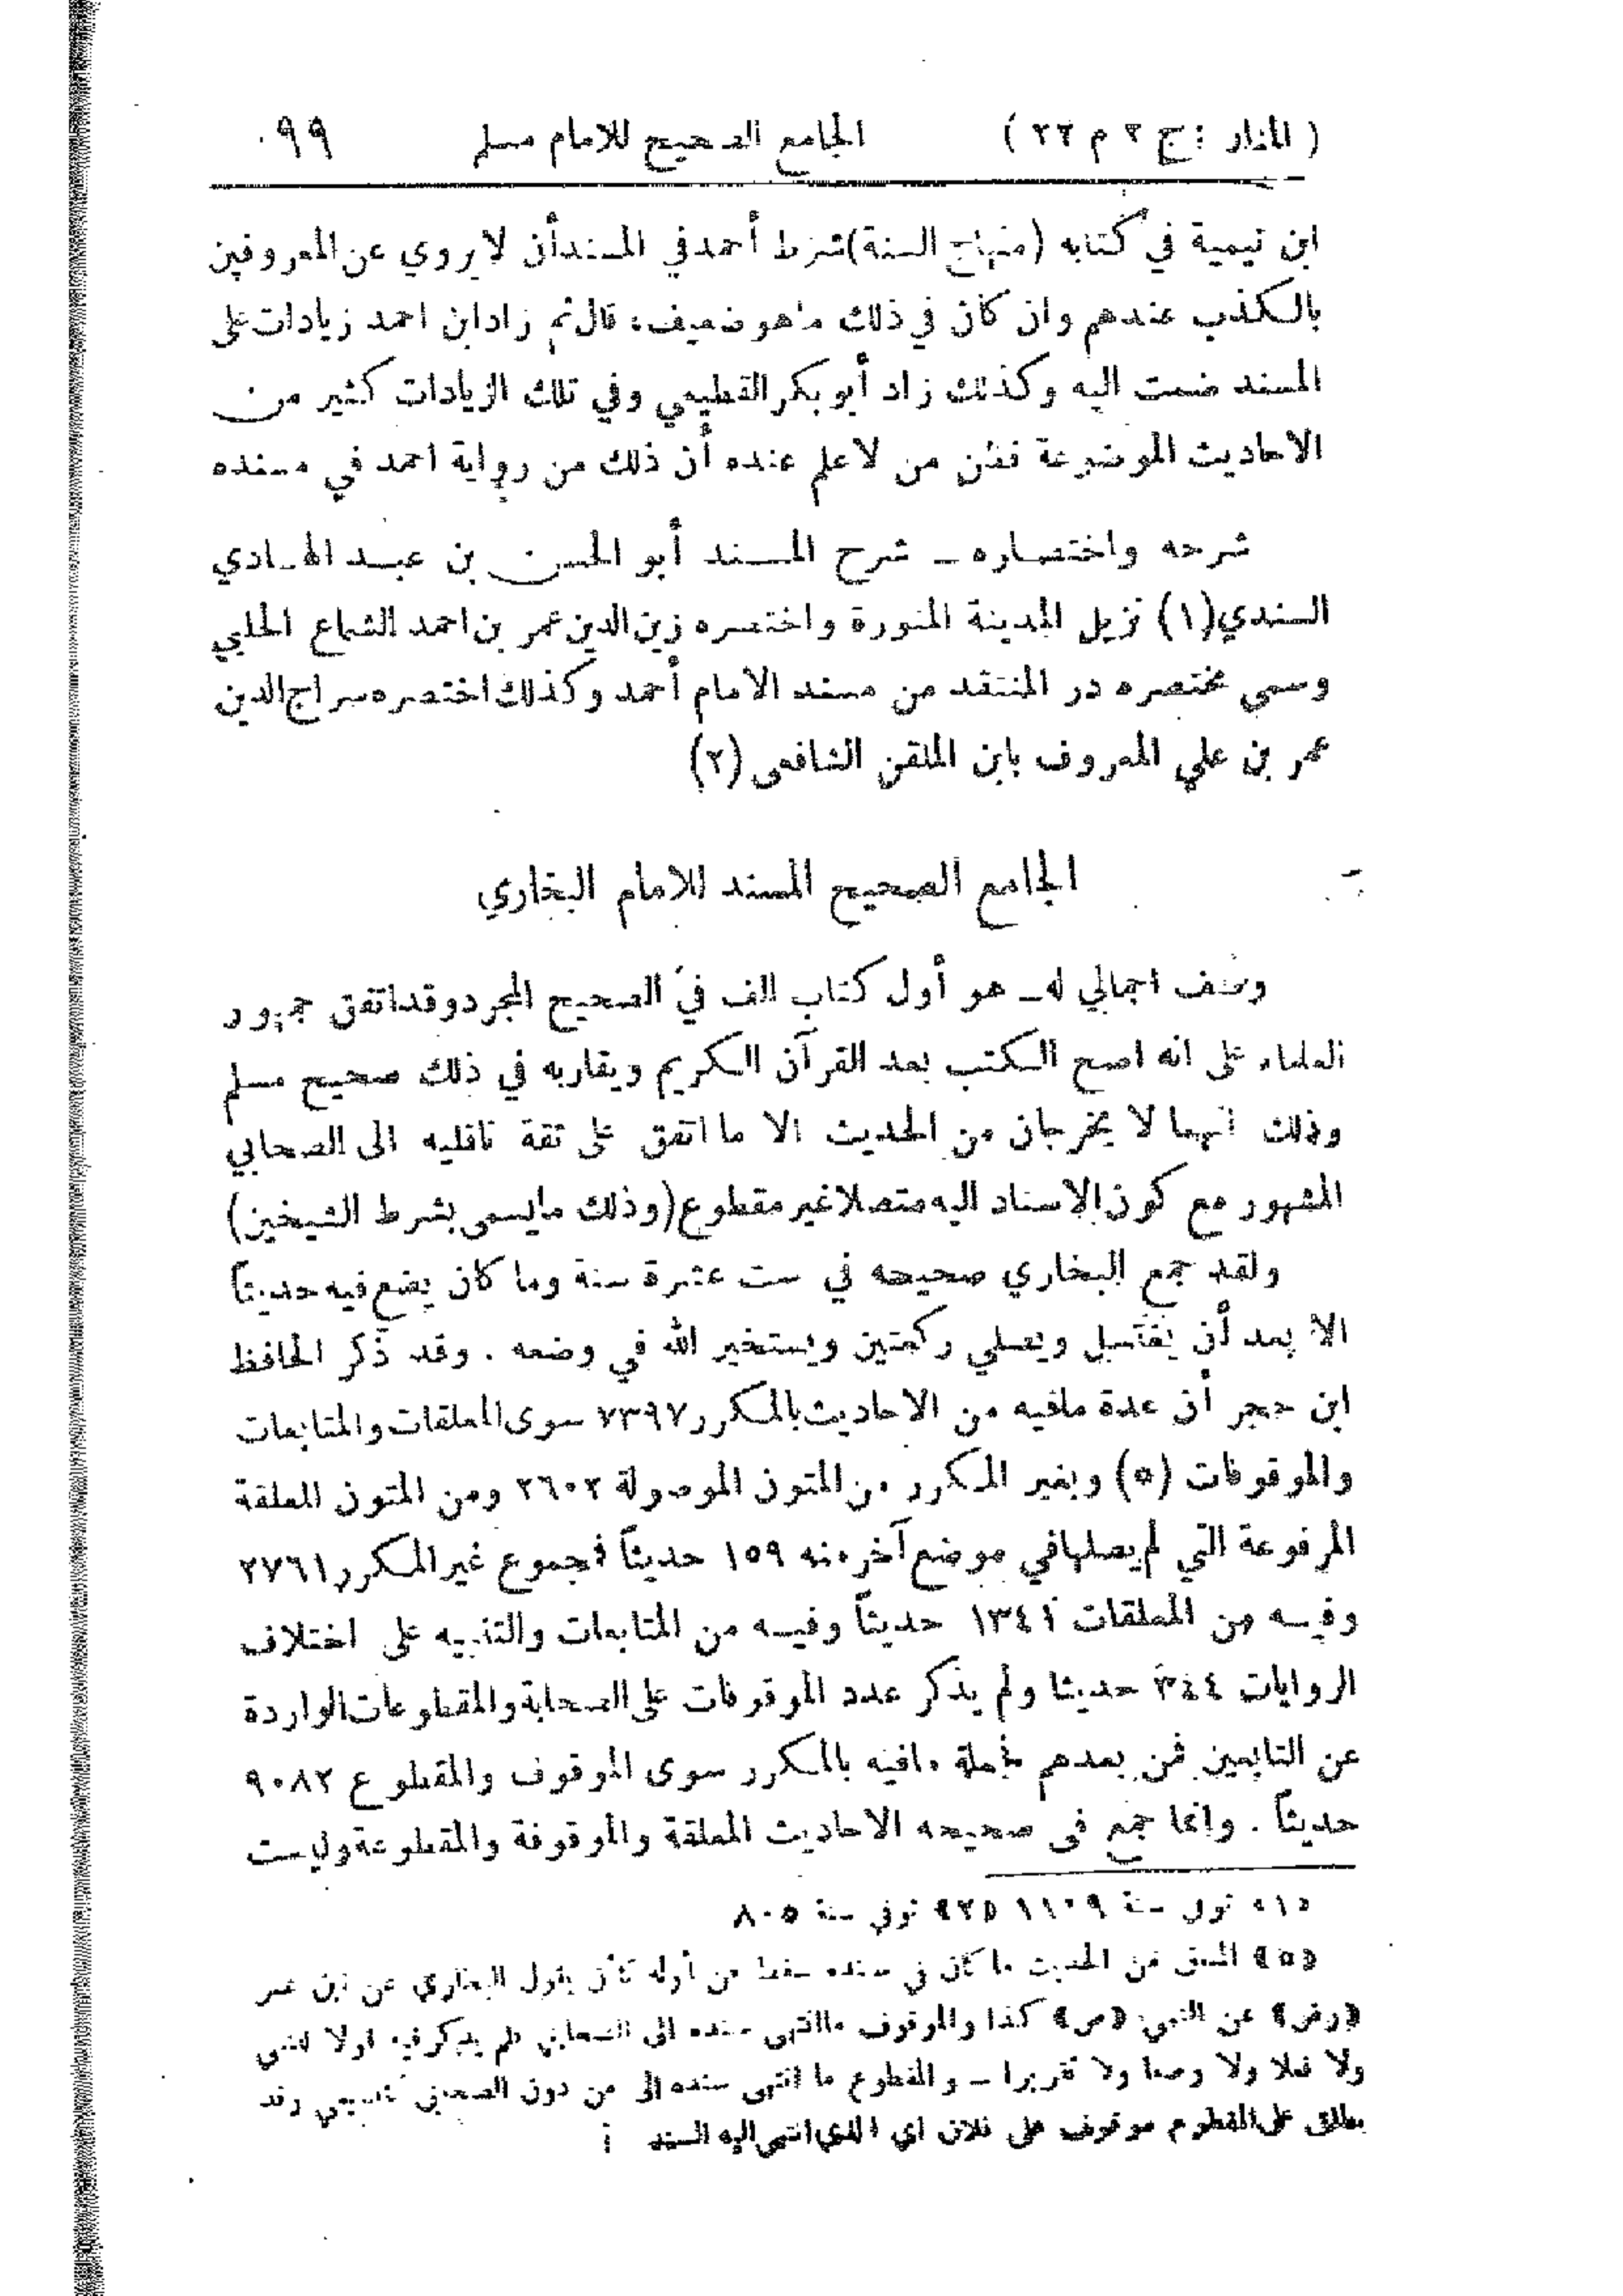 ( المنار : ج ٢ م ٢٢ ) الجامع الصحيح للامام مسلم ٩٩
ابن تيمية في كتابه (منهاج السنة) شرط أحمد في المسند أن لا يروي عن المعروفين
بالكذب عندهم وان كان في ذلك ما هو ضعيف ، قال ثم زاد ابن احمد زيادات على
المسند ضمت اليه وكذلك زاد أبو بكر القطيعي وفي تلك الزيادات كثير من
الاحاديث الموضوعة فظن من لا علم عنده أن ذلك من رواية احمد في مسنده
شرحه واختصاره ــ شرح المسند أبو الحسن بن عبد الهادي
السندي (١) نزيل المدينة المنورة واختصره زين الدين عمر بن احمد الشماع الحلبي
وسمي مختصره در المنتقد من مسند الامام أحمد وكذلك اختصره سراج الدين
عمر بن علي المعروف بابن الملقن الشافعى (٢)
الجامع الصحيح المسند للامام البخاري
وصف اجمالي له ــ هو أول كتاب الف في الصحيح المجرد وقد اتفق جمهور
العلماء على انه اصح الكتب بعد القرآن الكريم ويقاربه في ذلك صحيح مسلم
وذلك انهما لا يخرجان من الحديث الا ما اتفق على ثقة ناقليه الى الصحابي
المشهور مع كون الاسناد اليه متصلا غير مقطوع (وذلك ما يسمى بشرط الشيخين)
ولقد جمع البخاري صحيحه في ست عشرة سنة وما كان يضع فيه حديثاً
الا بعد أن يغتسل ويصلي ركعتين ويستخير الله في وضعه . وقد ذكر الحافظ
ابن حجر أن عدة مافيه من الاحاديث بالمكرر ٧٣٩٧ سوى المعلقات والمتابعات
والموقوفات (٥) وبغير المكرر من المتون الموصولة ٢٦٠٢ ومن المتون المعلقة
المرفوعة التي لم يصلها في موضع آخر منه ١٥٩ حديثاً فمجموع غير المكرر ٢٧٦١
وفيه من المعلقات ١٣٤١ حديثاً وفيه من المتابعات والتنبيه على اختلاف
الروايات ٣٤٤ حديثا ولم يذكر عدد الموقوفات على الصحابة والمقطوعات الواردة
عن التابعين فمن بعدهم فجملة مافيه بالمكرر سوى الموقوف والمقطوع ٩٠٨٢
حديثاً . وانما جمع فى صحيحه الاحاديث المعلقة والموقوفة والمقطوعة وليست
«١» توفي سنة ١١٠٩ «٢» توفي سنة ٨٠٥
«٥» المعلق من الحديث ما كان في سنده سقط من أوله كأن يقول البخاري عن ابن عمر
«رض» عن النبي «ص» كذا والموقوف ما انتهى سنده الى الصحابي ولم يذكر فيه قولا للنبي
ولا فعلا ولا وصفا ولا تقريرا ــ والمقطوع ما انتهى سنده الى من دون الصحابي كتابعي وقد
يطلق على المقطوع موقوف على فلان اي الذي انتهى اليه السند